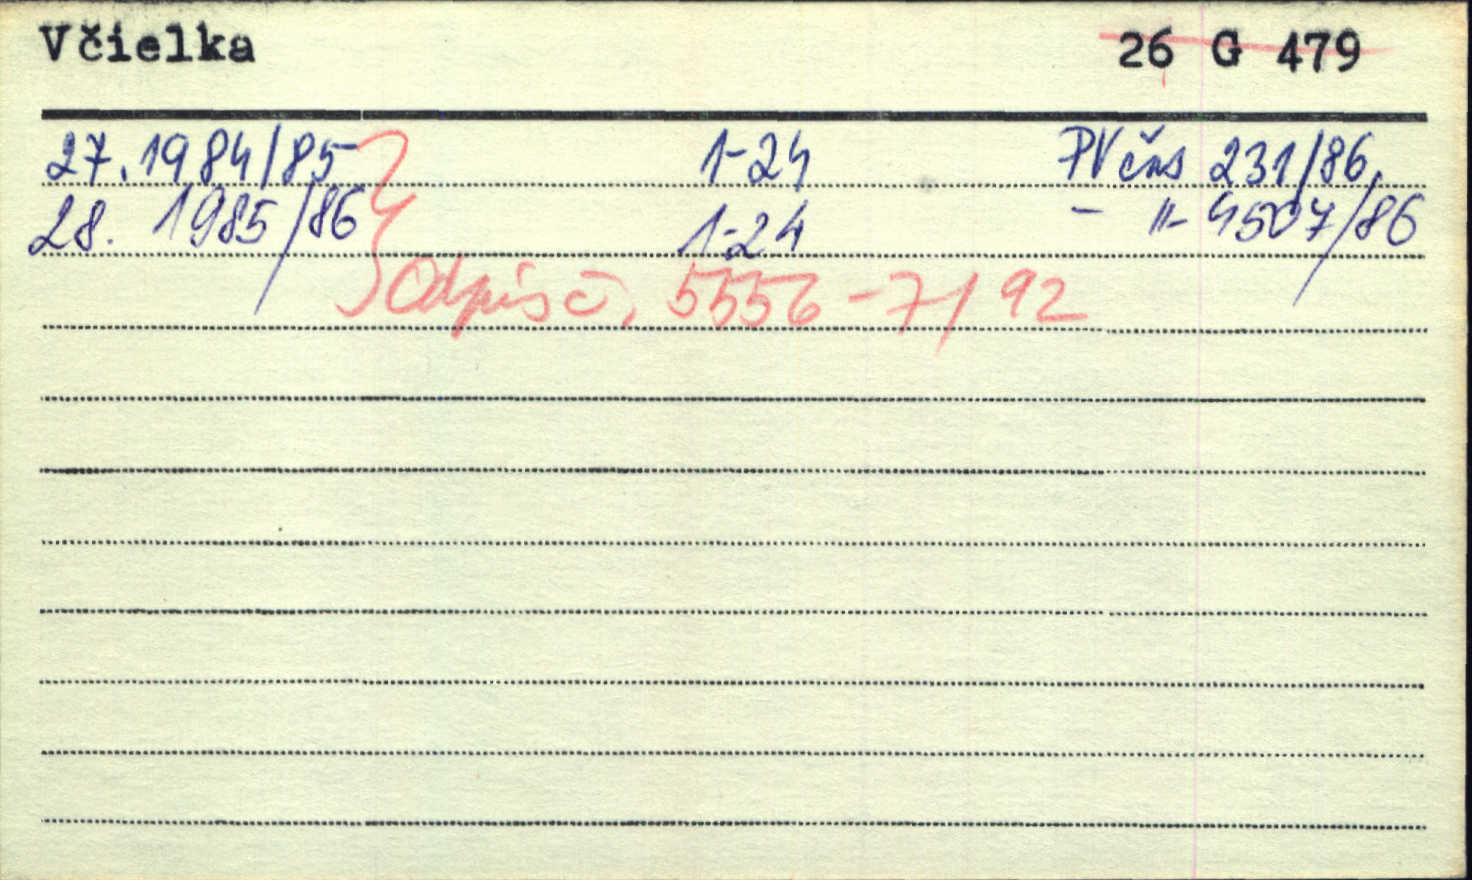 Včielka 26 G 479
27. 1984/85 1-24 PV čas 231/86
28. 1985/86 1-24 - " - 4507/86
Odpis č. 5556-7/92